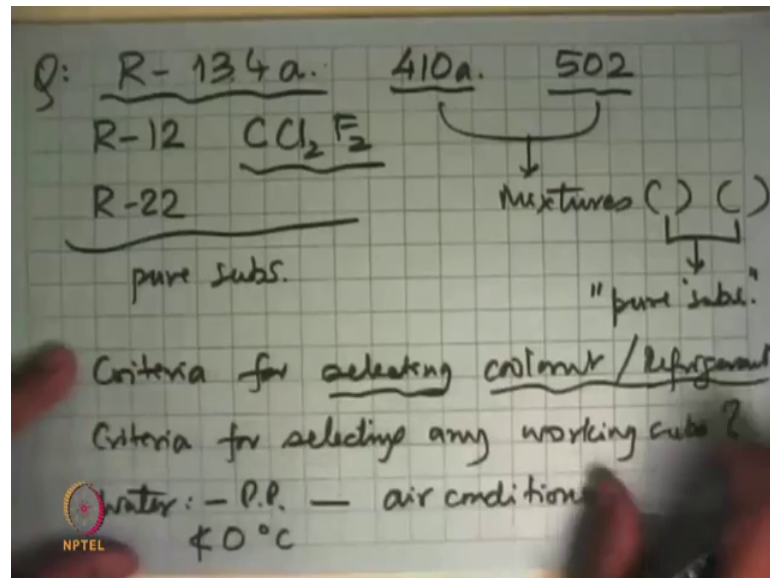 Q: R-134a. 410a. 502
R-12 CCl2F2
R-22 Mixtures ( ) ( )
pure subs. "pure subs."
Criteria for selecting coolant / Refrigerant
Criteria for selecting any working subs ?
water: - P.P. — air condition
≮ 0°C
NPTEL